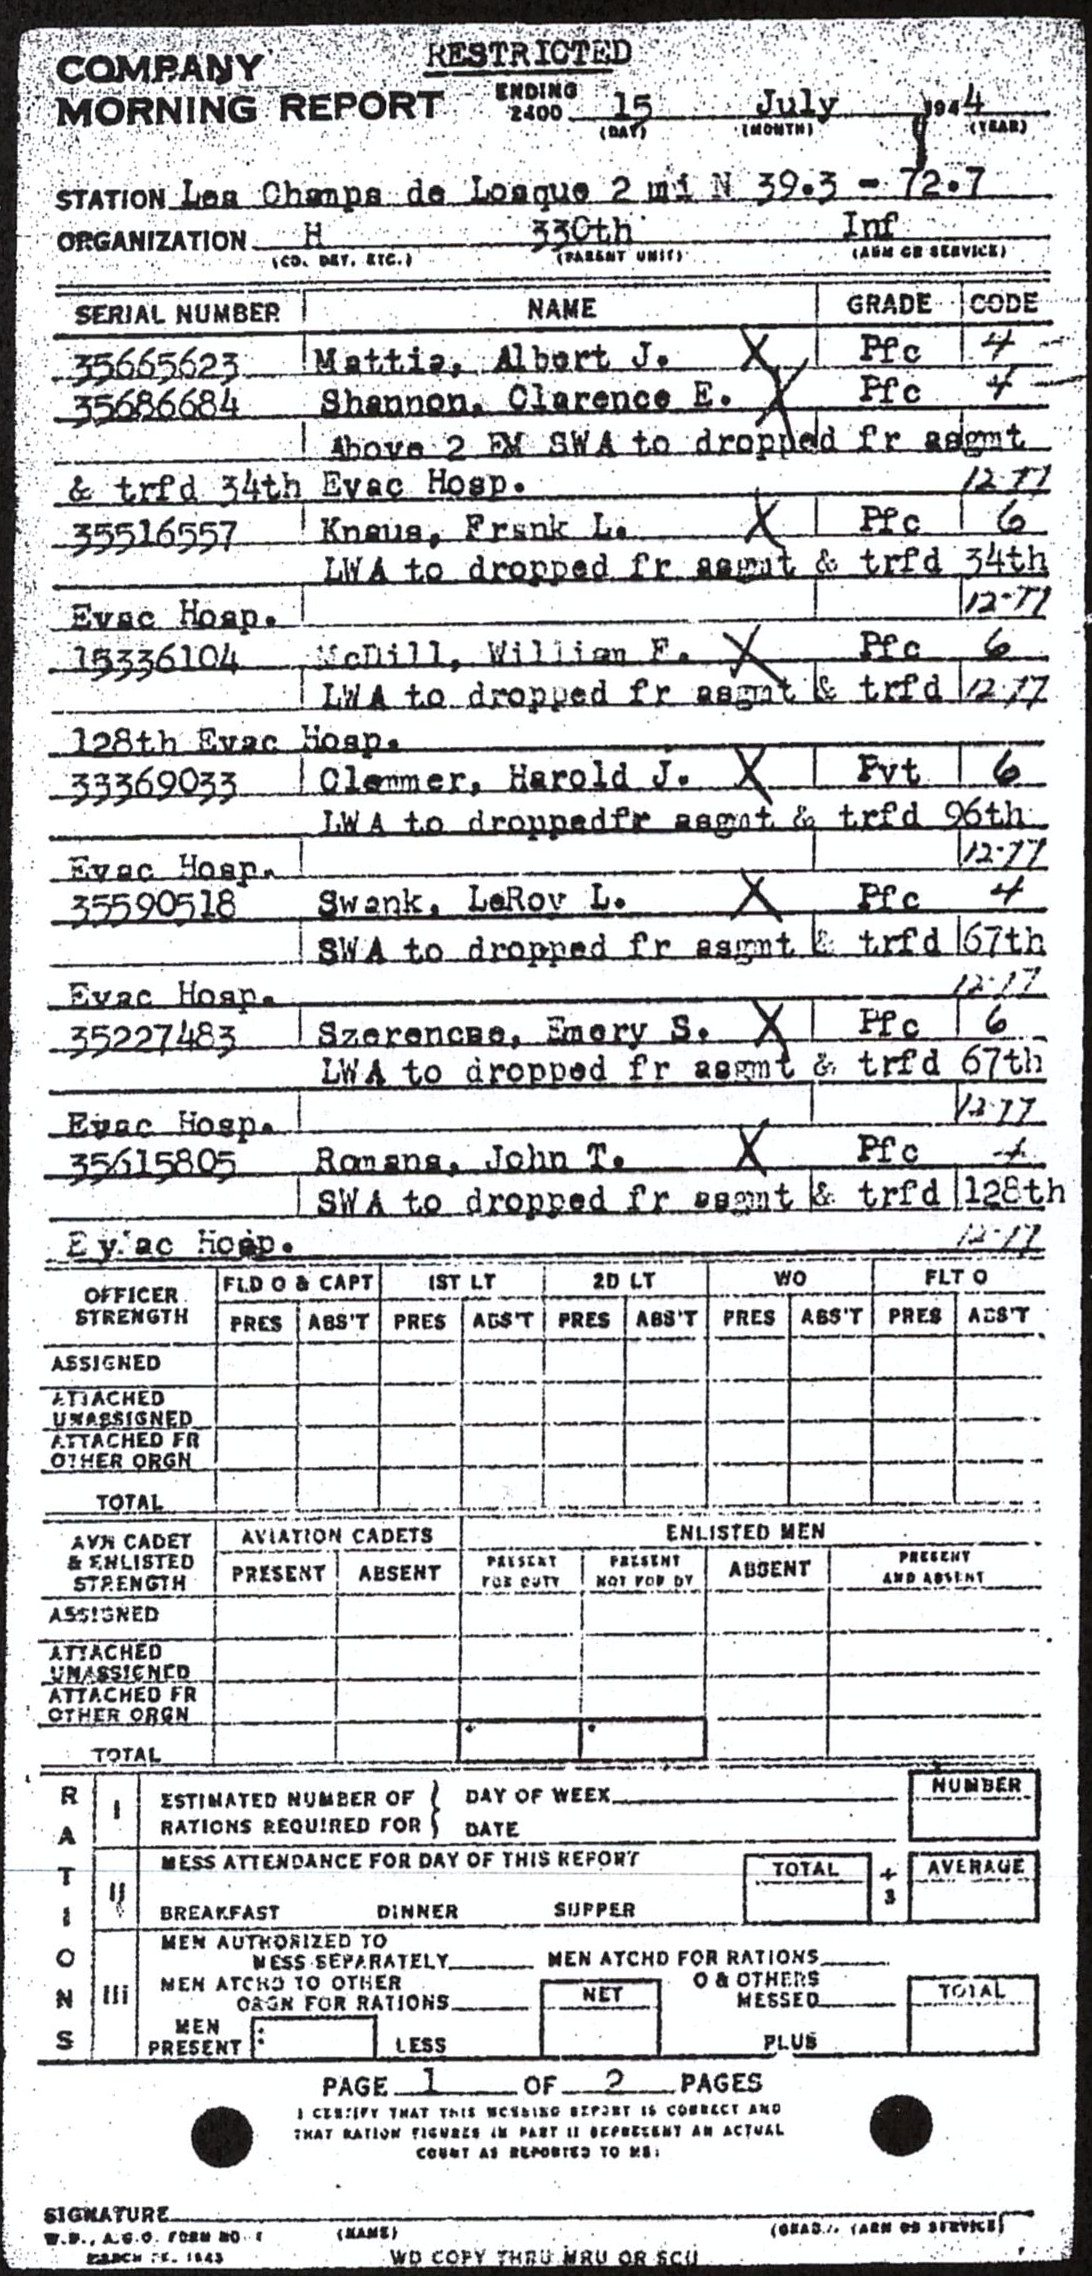 RESTRICTED
COMPANY
MORNING REPORT ENDING 2400 15 July 1944
(DAY) (MONTH) (YEAR)
STATION Les Champs de Losque 2 mi N 39.3 - 72.7
ORGANIZATION H 330th Inf
(CO. DET. ETC.) (PARENT UNIT) (ARM OR SERVICE)
SERIAL NUMBER NAME GRADE CODE
35665623 Mattis, Albert J. X Pfc 4
35686684 Shannon, Clarence E. X Pfc 4
Above 2 EM SWA to dropped fr asgmt
& trfd 34th Evac Hosp. 12-77
35516557 Knaus, Frank L. X Pfc 6
LWA to dropped fr asgmt & trfd 34th
Evac Hosp. 12-77
15336104 McDill, William F. X Pfc 6
LWA to dropped fr asgmt & trfd 12-77
128th Evac Hosp.
33369033 Clemmer, Harold J. X Pvt 6
LWA to droppedfr asgmt & trfd 96th
Evac Hosp. 12-77
35590518 Swank, LeRoy L. X Pfc 4
SWA to dropped fr asgmt & trfd 67th
Evac Hosp. 12-77
35227483 Szerencse, Emery S. X Pfc 6
LWA to dropped fr asgmt & trfd 67th
Evac Hosp. 12-77
35615805 Romans, John T. X Pfc 4
SWA to dropped fr asgmt & trfd 128th
Evac Hosp. 12-77
OFFICER STRENGTH FLD O & CAPT 1ST LT 2D LT WO FLT O
PRES ABS'T PRES ABS'T PRES ABS'T PRES ABS'T PRES ABS'T
ASSIGNED
ATTACHED
UNASSIGNED
ATTACHED FR
OTHER ORGN
TOTAL
AVN CADET & ENLISTED STRENGTH AVIATION CADETS ENLISTED MEN
PRESENT ABSENT PRESENT FOR DUTY PRESENT NOT FOR DY ABSENT PRESENT AND ABSENT
ASSIGNED
ATTACHED
UNASSIGNED
ATTACHED FR
OTHER ORGN
TOTAL
RATIONS
I ESTIMATED NUMBER OF RATIONS REQUIRED FOR DAY OF WEEK NUMBER
DATE
II MESS ATTENDANCE FOR DAY OF THIS REPORT TOTAL ÷ 3 AVERAGE
BREAKFAST DINNER SUPPER
III MEN AUTHORIZED TO
MESS SEPARATELY MEN ATCHD FOR RATIONS
MEN ATCHD TO OTHER
ORGN FOR RATIONS NET O & OTHERS MESSED TOTAL
MEN PRESENT LESS PLUS
PAGE 1 OF 2 PAGES
I CERTIFY THAT THIS MORNING REPORT IS CORRECT AND
THAT RATION FIGURES IN PART II REPRESENT AN ACTUAL
COUNT AS REPORTED TO ME:
SIGNATURE
W.D., A.G.O. FORM NO. 1 (NAME) (GRADE) (ARM OR SERVICE)
MARCH 1943
WD COPY THRU MRU OR SCU